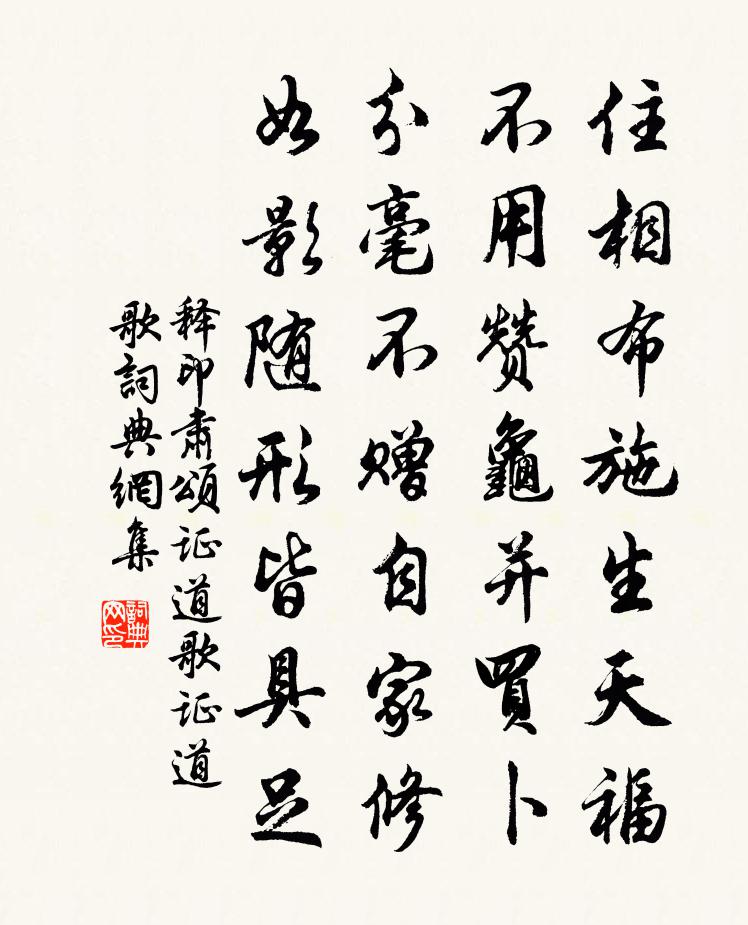 住相布施生天福
不用赞龜并買卜
分毫不赠自家修
如影随形皆具足
释印肃頌证道歌证道
歌詞典網集
詞典网印